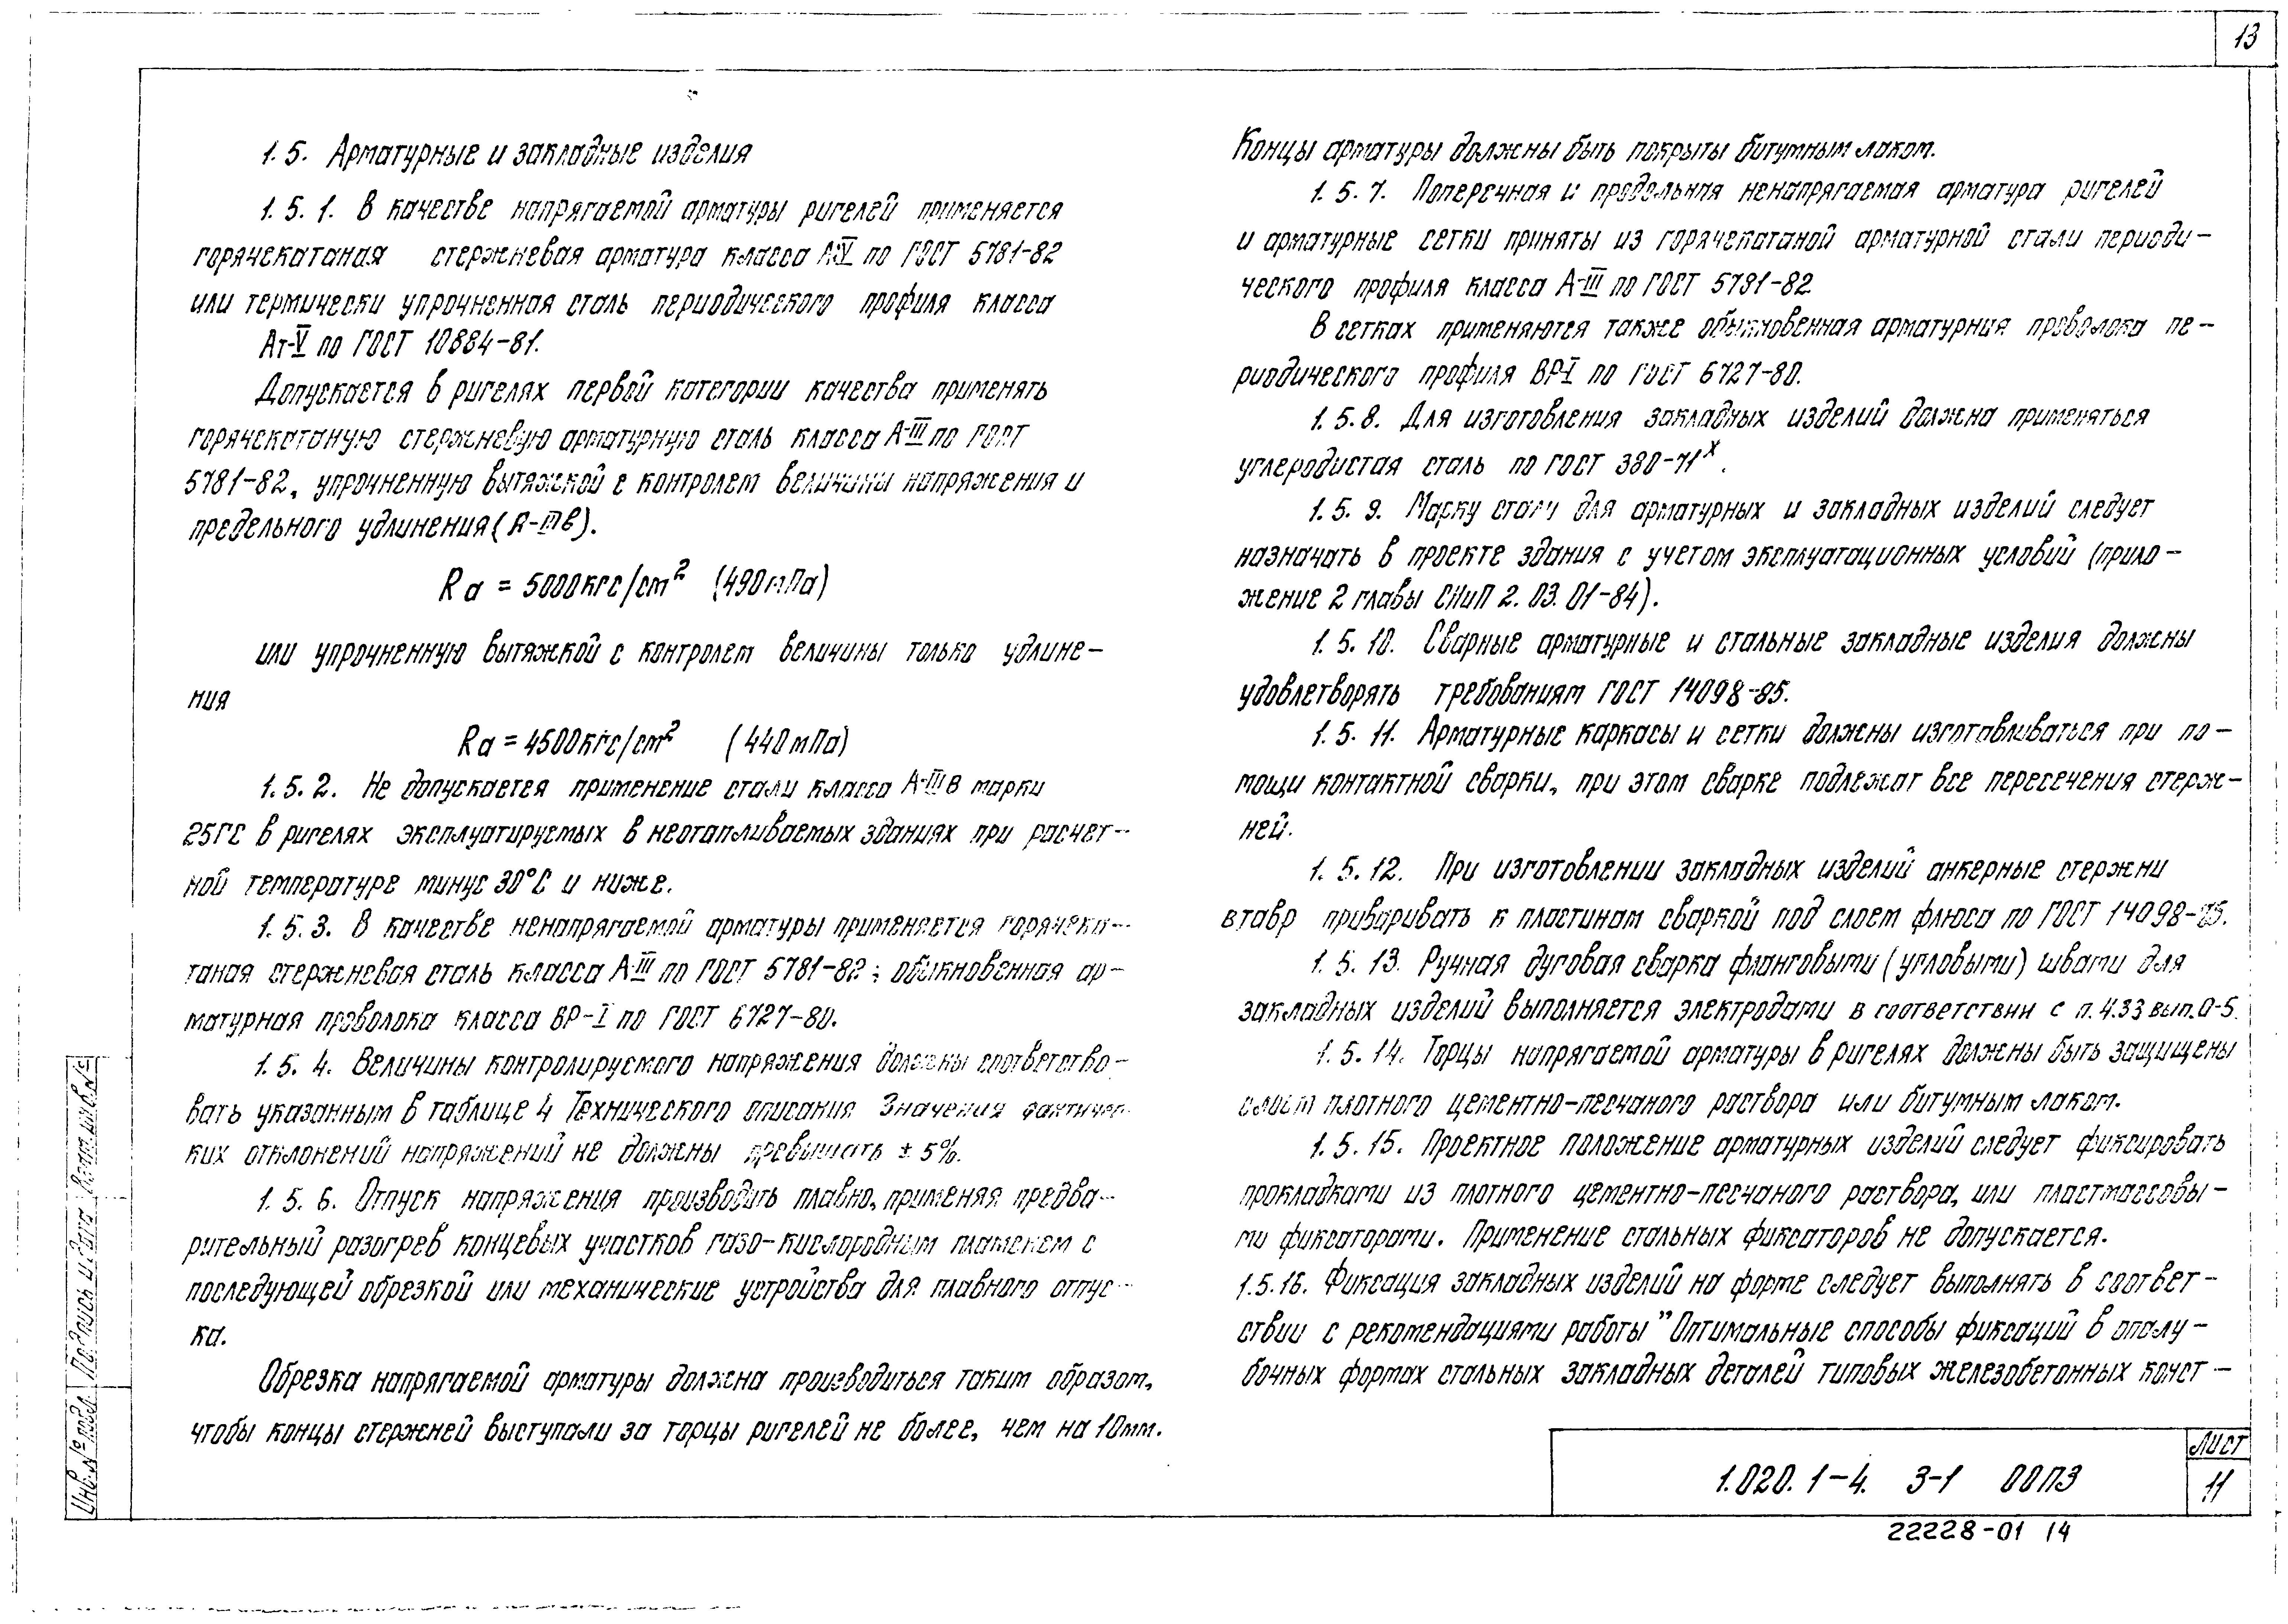 13
1.5. Арматурные и закладные изделия
1.5.1. В качестве напрягаемой арматуры ригелей применяется
горячекатаная стержневая арматура класса А-V по ГОСТ 5781-82
или термически упрочненная сталь периодического профиля класса
Ат-V по ГОСТ 10884-81.
Допускается в ригелях первой категории качества применять
горячекатаную стержневую арматурную сталь класса А-III по ГОСТ
5781-82, упрочненную вытяжкой с контролем величины напряжения и
предельного удлинения (А-IIIв).
Ra = 5000кгс/см² (490мПа)
или упрочненную вытяжкой с контролем величины только удлине-
ния
Ra = 4500кгс/см² (440мПа)
1.5.2. Не допускается применение стали класса А-IIIв марки
25ГС в ригелях эксплуатируемых в неотапливаемых зданиях при расчет-
ной температуре минус 30°С и ниже.
1.5.3. В качестве ненапрягаемой арматуры применяется горячека-
таная стержневая сталь класса А-III по ГОСТ 5781-82; обыкновенная ар-
матурная проволока класса ВР-I по ГОСТ 6727-80.
1.5.4. Величины контролируемого напряжения должны соответство-
вать указанным в таблице 4 Технического описания Значения фактичес-
ких отклонений напряжений не должны превышать ± 5%.
1.5.6. Отпуск напряжения производить плавно, применяя предва-
рительный разогрев концевых участков газо-кислородным пламенем с
последующей обрезкой или механические устройства для плавного отпус-
ка.
Обрезка напрягаемой арматуры должна производиться таким образом,
чтобы концы стержней выступали за торцы ригелей не более, чем на 10мм.
Концы арматуры должны быть покрыты битумным лаком.
1.5.7. Поперечная и продольная ненапрягаемая арматура ригелей
и арматурные сетки приняты из горячекатаной арматурной стали периоди-
ческого профиля класса А-III по ГОСТ 5781-82
В сетках применяются также обыкновенная арматурная проволока пе-
риодического профиля ВР-I по ГОСТ 6727-80.
1.5.8. Для изготовления закладных изделий должна применяться
углеродистая сталь по ГОСТ 380-71ˣ.
1.5.9. Марку стали для арматурных и закладных изделий следует
назначать в проекте здания с учетом эксплуатационных условий (прило-
жение 2 главы СНиП 2.03.01-84).
1.5.10. Сварные арматурные и стальные закладные изделия должны
удовлетворять требованиям ГОСТ 14098-85.
1.5.11. Арматурные каркасы и сетки должны изготавливаться при по-
мощи контактной сварки, при этом сварке подлежат все пересечения стерж-
ней.
1.5.12. При изготовлении закладных изделий анкерные стержни
втавр приваривать к пластинам сваркой под слоем флюса по ГОСТ 14098-85.
1.5.13. Ручная дуговая сварка фланговыми (угловыми) швами для
закладных изделий выполняется электродами в соответствии с п.4.33 вып.0-5.
1.5.14. Торцы напрягаемой арматуры в ригелях должны быть защищены
слоем плотного цементно-песчаного раствора или битумным лаком.
1.5.15. Проектное положение арматурных изделий следует фиксировать
прокладками из плотного цементно-песчаного раствора, или пластмассовы-
ми фиксаторами. Применение стальных фиксаторов не допускается.
1.5.16. Фиксация закладных изделий на форме следует выполнять в соответ-
ствии с рекомендациями работы "Оптимальные способы фиксаций в опалу-
бочных формах стальных закладных деталей типовых железобетонных конст-
Инв.№ подл. Подпись и дата Взам.инв.№
1.020.1-4. 3-1 00ПЗ
Лист
11
22228-01 14